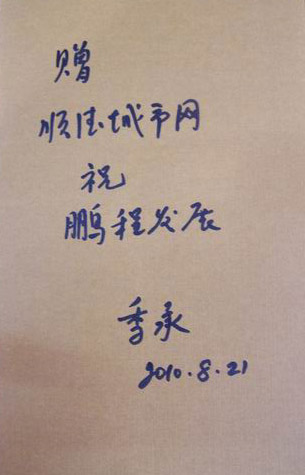 赠
顺德城市网
祝
鹏程发展
季承
2010.8.21